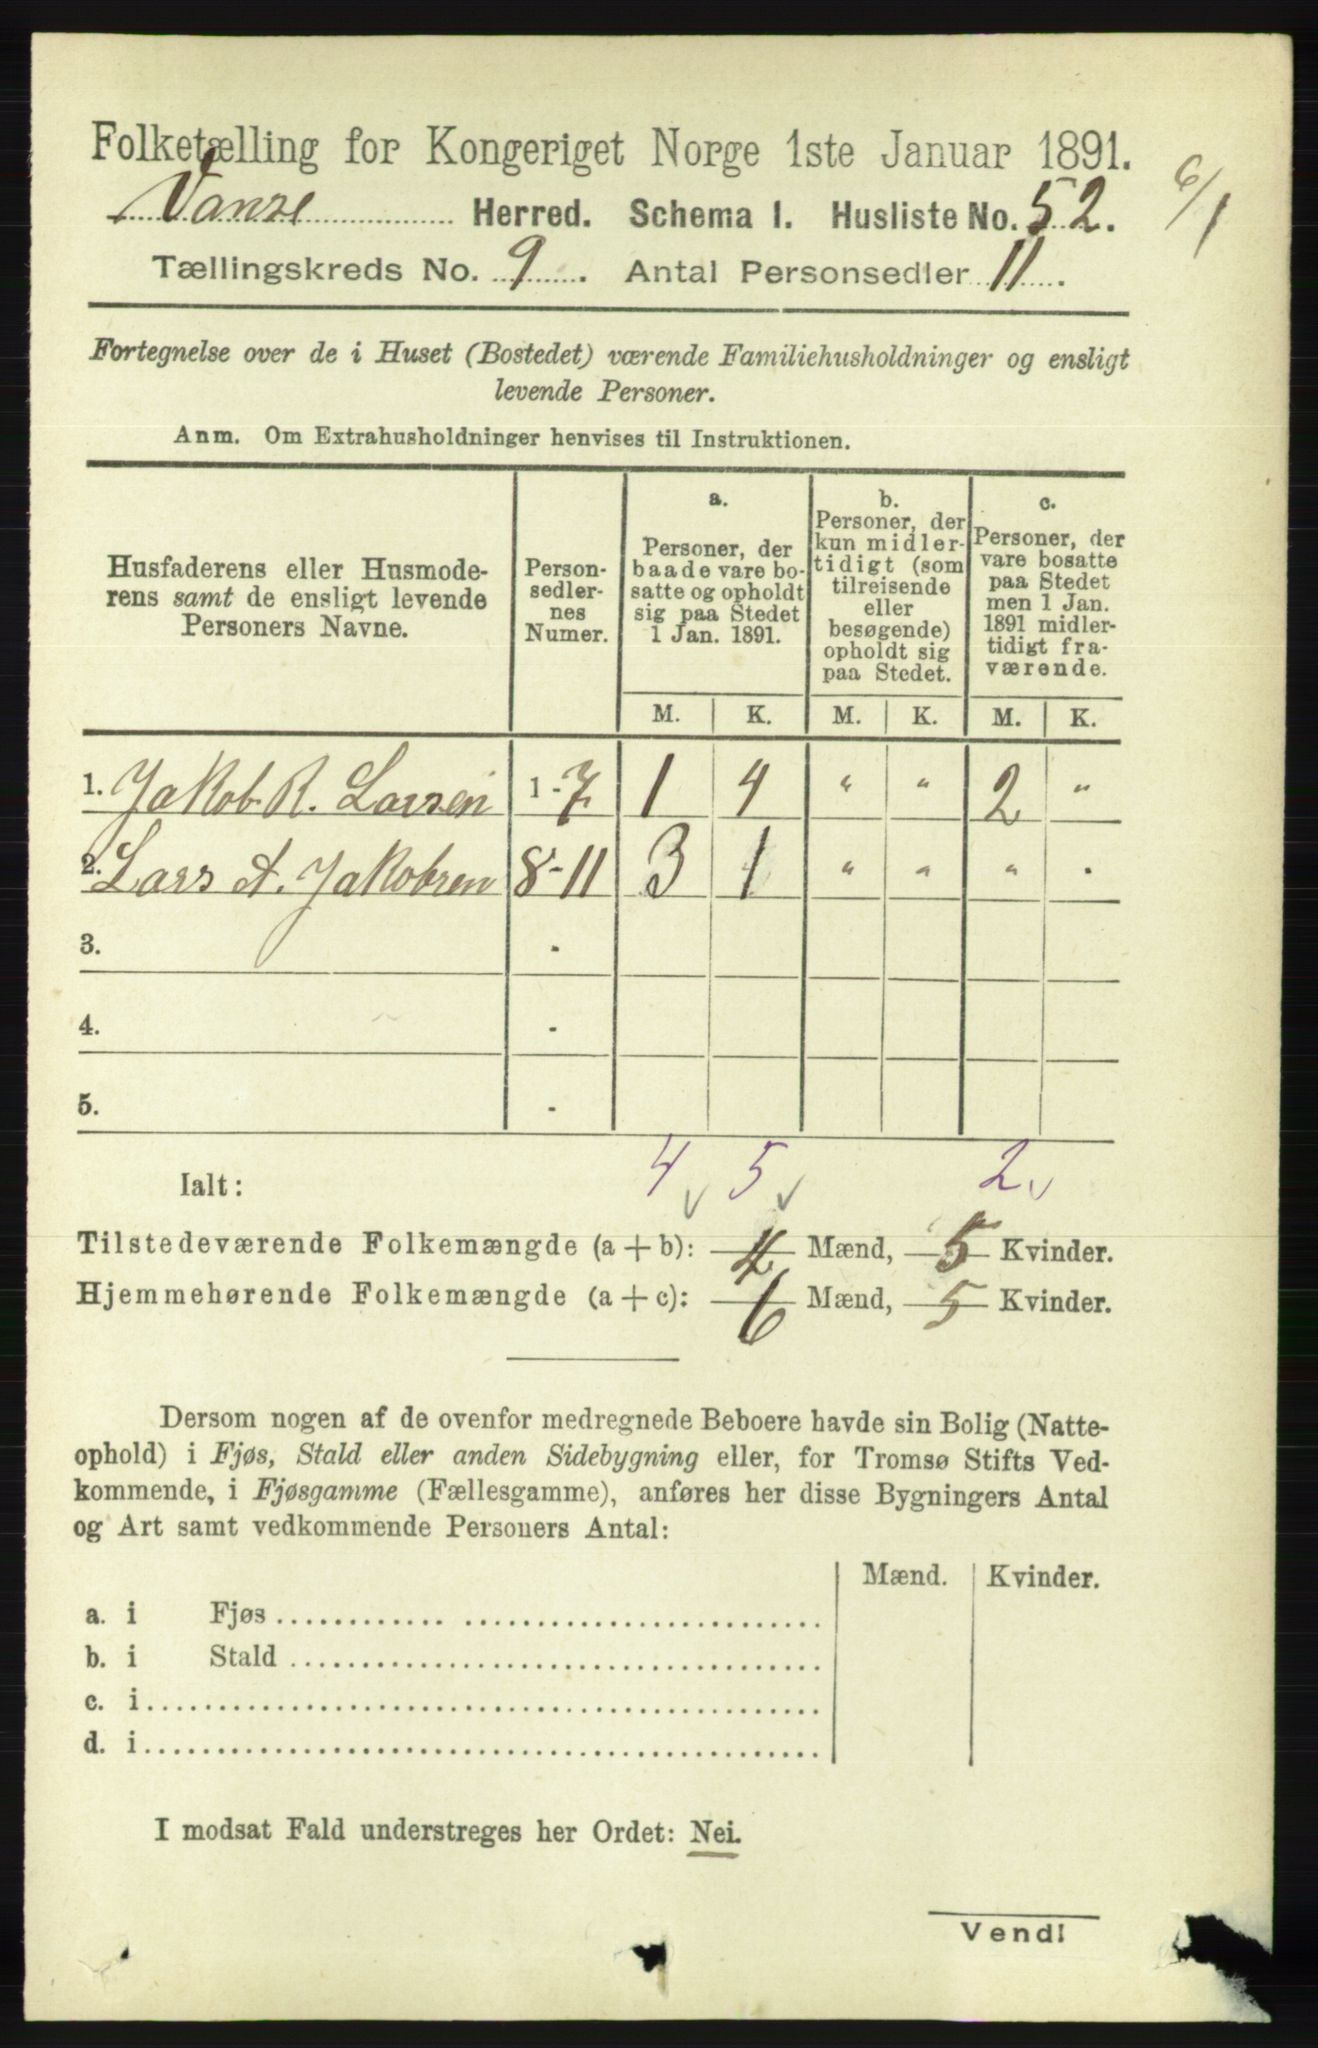 Folketælling for Kongeriget Norge 1ste Januar 1891.
6/1
Vanse Herred. Schema I. Husliste No. 52.
Tællingskreds No. 9. Antal Personsedler 11.
Fortegnelse over de i Huset (Bostedet) værende Familiehusholdninger og ensligt
levende Personer.
Anm. Om Extrahusholdninger henvises til Instruktionen.
Husfaderens eller Husmode-
rens samt de ensligt levende
Personers Navne.
Person-
sedler-
nes
Numer.
a.
Personer, der
baade vare bo-
satte og opholdt
sig paa Stedet
1 Jan. 1891.
b.
Personer, der
kun midler-
tidigt (som
tilreisende
eller
besøgende)
opholdt sig
paa Stedet.
c.
Personer, der
vare bosatte
paa Stedet
men 1 Jan.
1891 midler-
tidigt fra-
værende.
M. K. M. K. M. K.
1. Jakob R. Larsen 1-7 1 4 " " 2 "
2. Lars A. Jakobsen 8-11 3 1 " " " .
3. -
4. -
5. -
Ialt: 4 5 2
Tilstedeværende Folkemængde (a+b): 4 Mænd, 5 Kvinder.
Hjemmehørende Folkemængde (a+c): 6 Mænd, 5 Kvinder.
Dersom nogen af de ovenfor medregnede Beboere havde sin Bolig (Natte-
ophold) i Fjøs, Stald eller anden Sidebygning eller, for Tromsø Stifts Ved-
kommende, i Fjøsgamme (Fællesgamme), anføres her disse Bygningers Antal
og Art samt vedkommende Personers Antal:
Mænd. Kvinder.
a. i Fjøs
b. i Stald
c. i
d. i
I modsat Fald understreges her Ordet: Nei.
Vend!